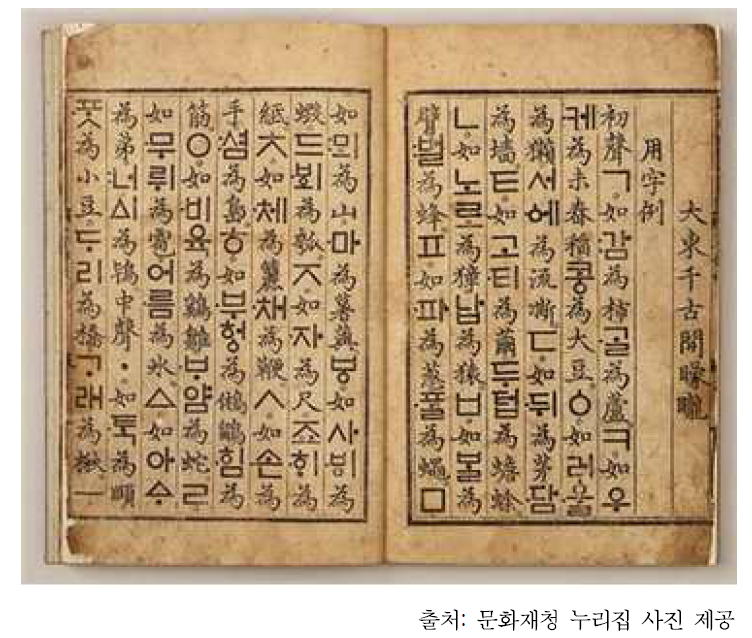 大東千古開矇矓
用字例
初聲ㄱ。如감為柿。ᄀᆞᆯ為蘆。ㅋ。如우
케為未舂稻。콩為大豆。ㆁ。如러울
為獺。서에為流凘。ㄷ。如뒤為茅。담
為墻。ㅌ。如고티為繭。두텁為蟾蜍。
ㄴ。如노로為獐。납為猿。ㅂ。如ᄇᆞᆯ為
臂。벌為蜂。ㅍ。如파為葱。ᄑᆞᆯ為蠅。ㅁ
如뫼為山。마為薯藇。ㅸ。如사ᄫᅵ為
蝦。드ᄫᅴ為瓠。ㅈ。如자為尺。죠ᄒᆡ為
紙。ㅊ。如체為籭。채為鞭。ㅅ。如손為
手。셤為島。ㅎ。如부헝為鵂鶹。힘為
筋。ㅇ。如비육為鷄雛。ᄇᆞ얌為蛇。ㄹ
如무뤼為雹。어름為氷。ㅿ。如아ᅀᆞ
為弟。너ᅀᅵ為鴇。中聲ㆍ。如ᄐᆞᆨ為頤
ᄑᆞᆺ為小豆。ᄃᆞ리為橋。ᄀᆞ래為楸。ㅡ
출처: 문화재청 누리집 사진 제공